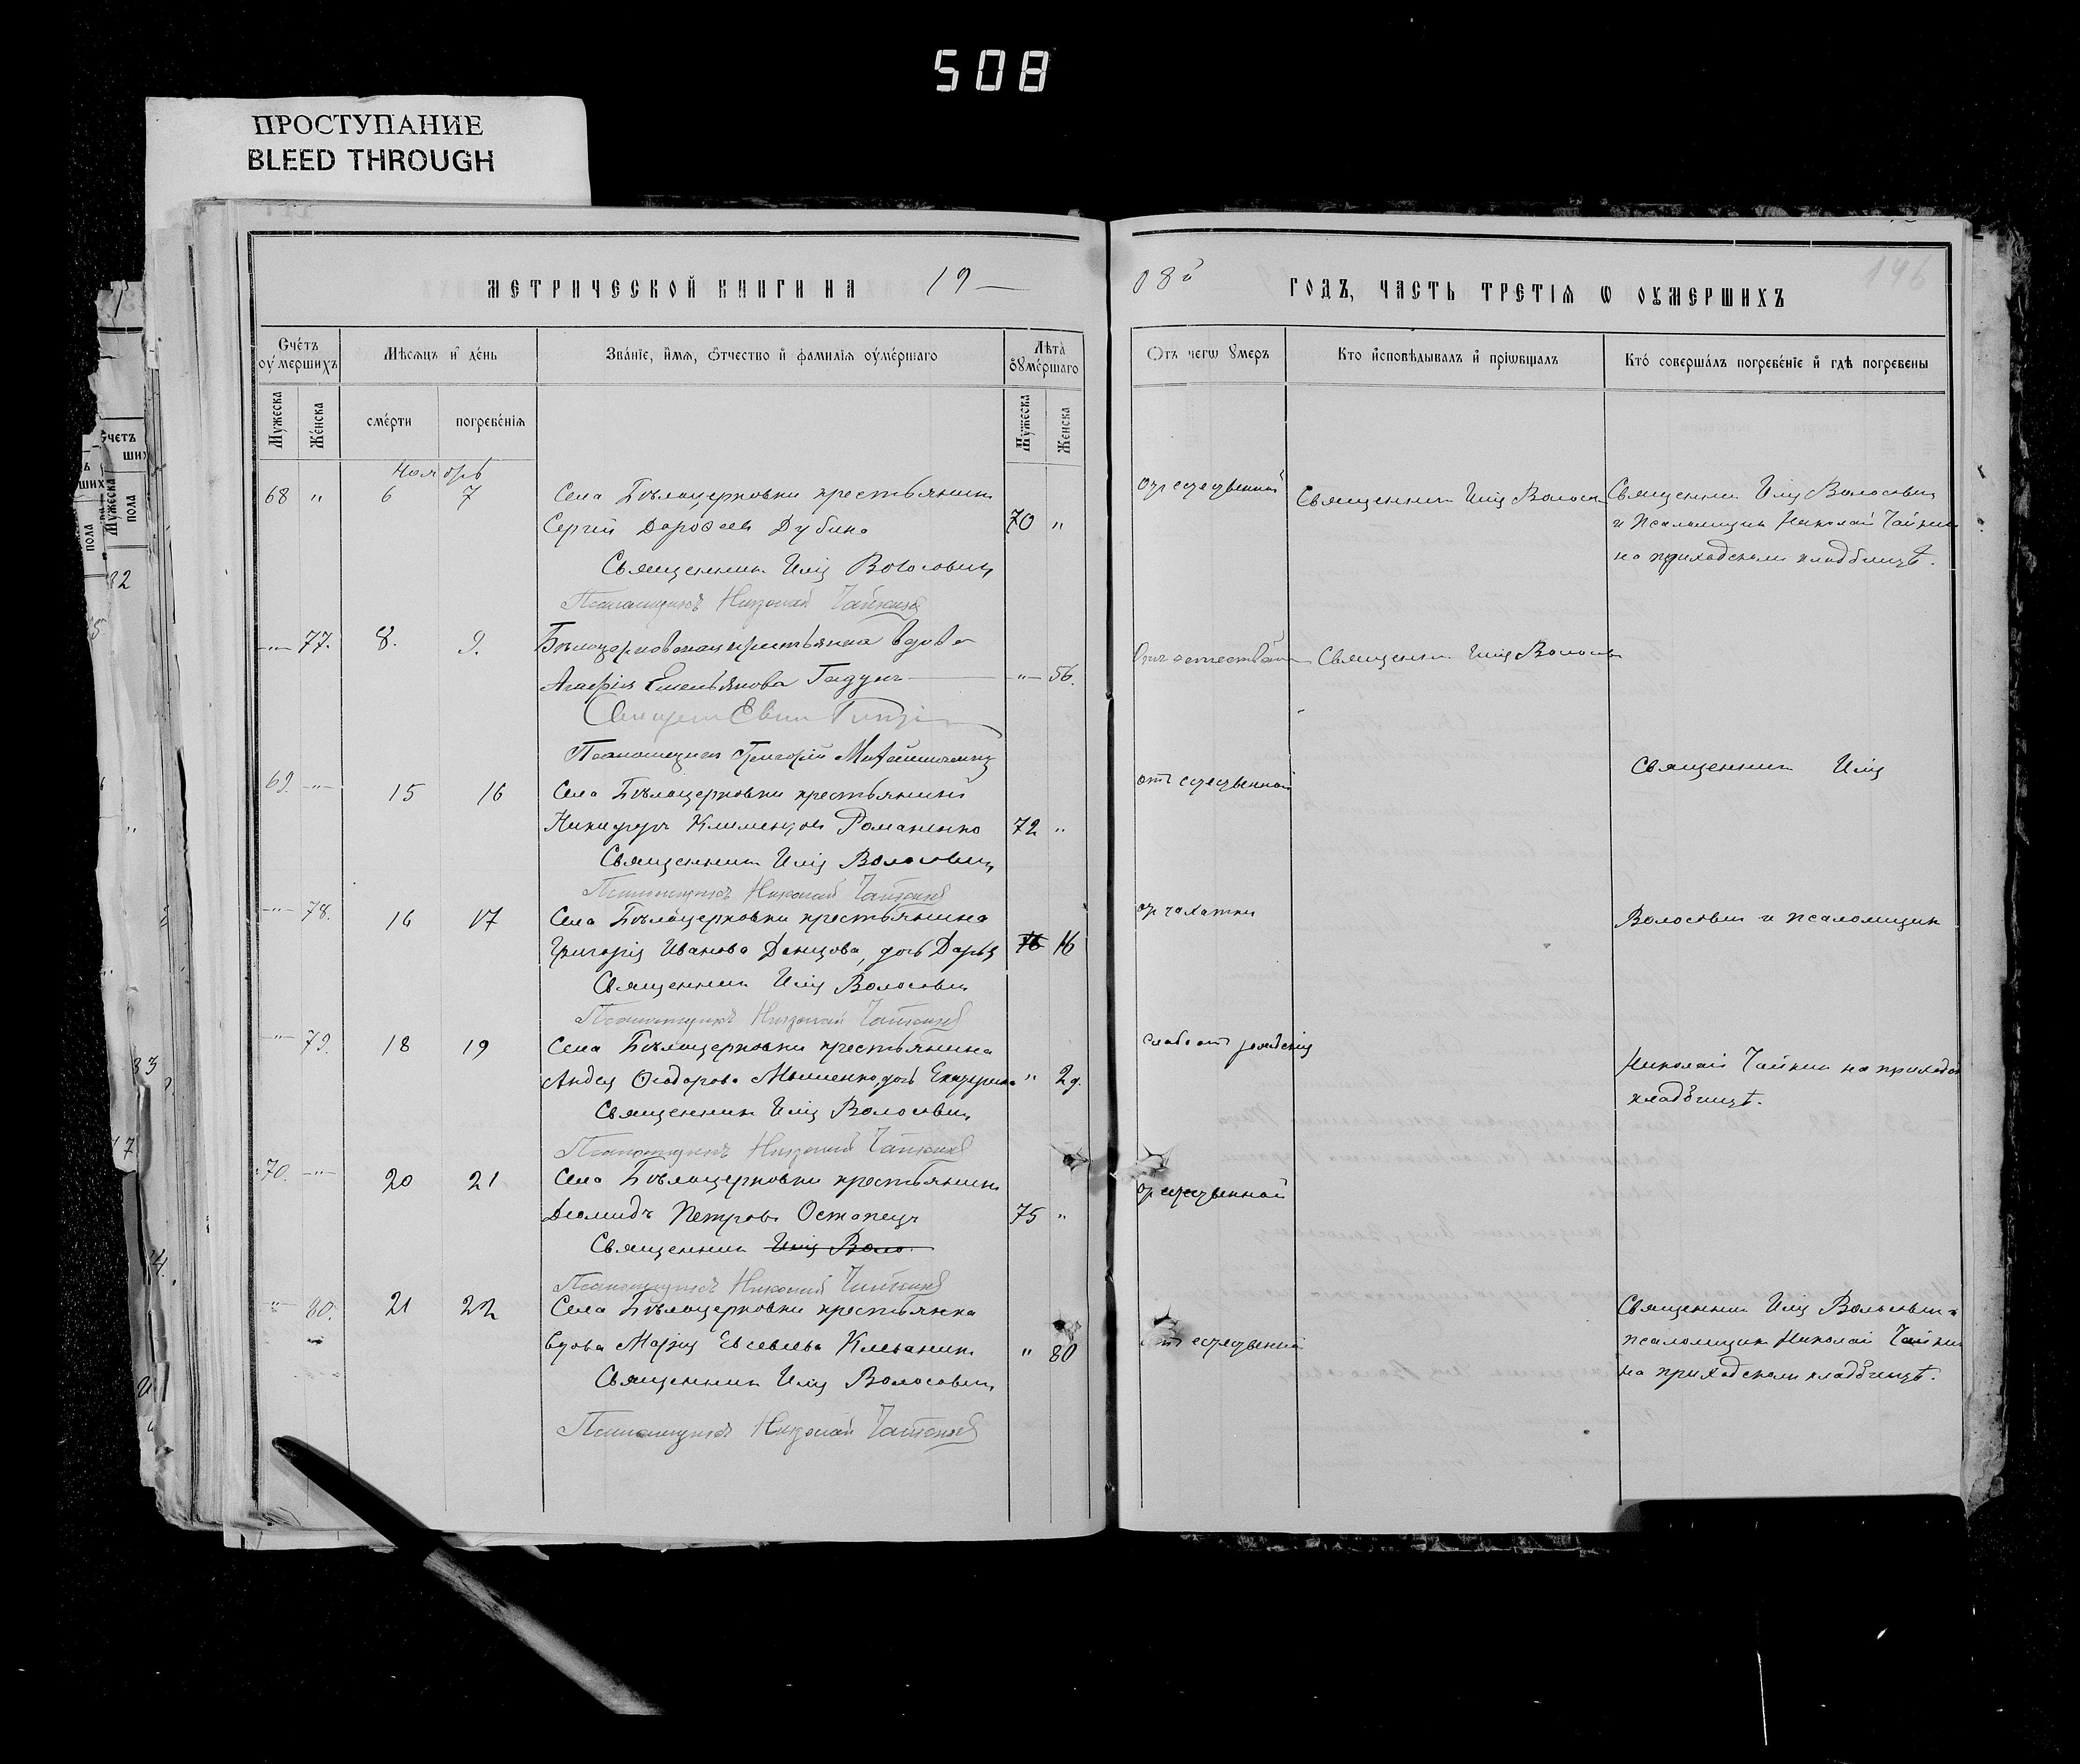 508
ПРОСТУПАНИЕ
BLEED THROUGH
МЕТРИЧЕСКОЙ КНИГИ НА 19
Счетъ оумершихъ
Мѣсяцъ и день
Званіе, имя, отчество и фамилія оумершаго
Лѣта оумершаго
Мужеска
Женска
смерти
погребенія
Мужеска
Женска
Ноябрь
68 " 6 7 Села Бѣлоцерковки крестьянинъ
Сергій Дороѳеевъ Дубина 70 "
Священникъ Илія Волосовичъ
Псаломщикъ Николай Чайкинъ
-"- 77. 8. 9. Бѣлоцерковская крестьянка вдова
Агафія Емельянова -"- 56.
Псаломщикъ Григорій
69. -"- 15 16 Села Бѣлоцерковки крестьянинъ
Никифоръ Климентовъ Романенко 72 "
Священникъ Илія Волосовичъ
Псаломщикъ Николай Чайкинъ
-"- 78. 16 17 Села Бѣлоцерковки крестьянина
Григорія Иванова Донцова, дочь Дарья 16 16
Священникъ Илія Волосовичъ
Псаломщикъ Николай Чайкинъ
-"- 79. 18 19 Села Бѣлоцерковки крестьянина
Ѳеодорова дочь Екатерина " 2 д.
Священникъ Илія Волосовичъ
Псаломщикъ Николай Чайкинъ
70. -"- 20 21 Села Бѣлоцерковки крестьянинъ
Діомидъ Петровъ Остапецъ 75 "
Священникъ Илія Воло
Псаломщикъ Николай Чайкинъ
-"- 80. 21 22 Села Бѣлоцерковки крестьянка
вдова Марія Евсевіева " 80
Священникъ Илія Волосовичъ
Псаломщикъ Николай Чайкинъ
08й ГОДЪ, ЧАСТЬ ТРЕТІЯ Ѡ ОУМЕРШИХЪ
146
Отъ чегѡ умеръ
Кто исповѣдывалъ и пріѡбщалъ
Кто совершалъ погребеніе и гдѣ погребены
отъ естественной
Священникъ Илія Волосов
Священникъ Илія Волосовичъ
и Псаломщикъ Николай Чайкинъ
на приходскомъ кладбищѣ.
Отъ естественной
Священникъ Илія Волосов
отъ естественной
Священникъ Илія
отъ чахотки
Волосовичъ и псаломщикъ
слабости рожденія
Николай Чайкинъ на приходск
кладбищѣ.
отъ естественной
отъ естественной
Священникъ Илія Волосовичъ и
псаломщикъ Николай Чайкинъ
на приходскомъ кладбищѣ.